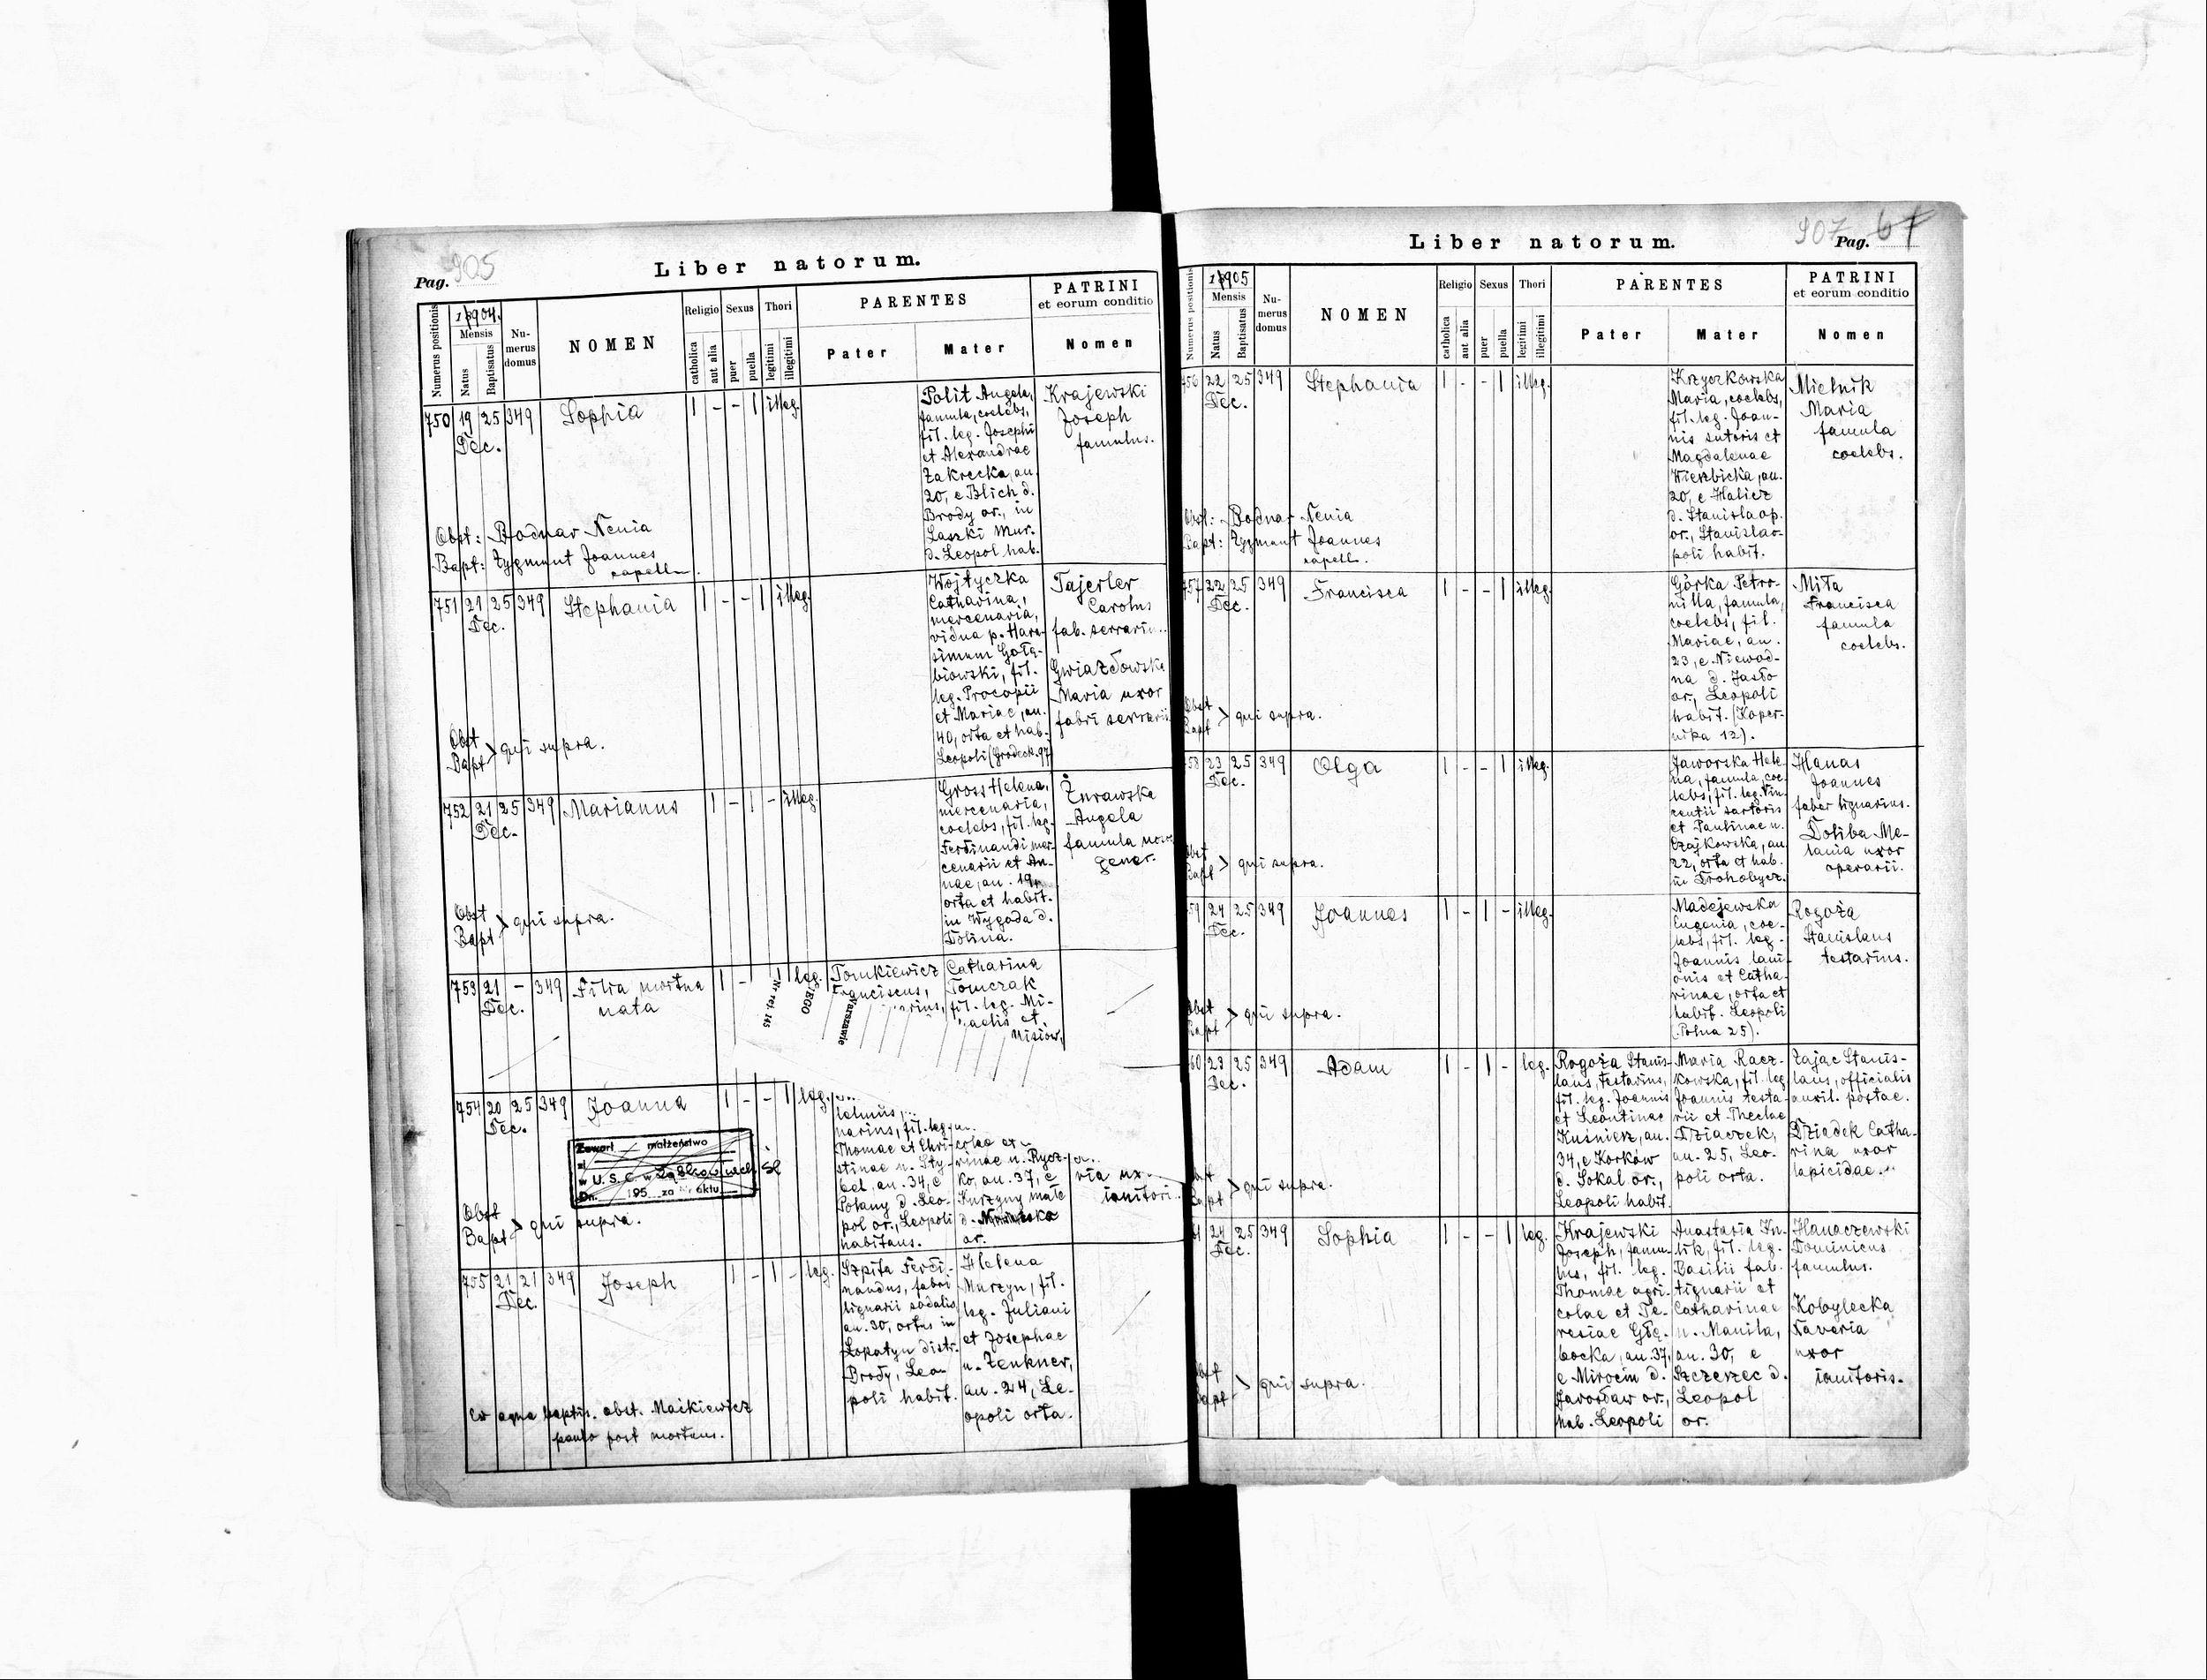 Pag. 905
Liber natorum.
Numerus positionis
1904.
Mensis
Natus
Baptisatus
Nu-
merus
domus
NOMEN
Religio
catholica
aut alia
Sexus
puer
puella
Thori
legitimi
illegitimi
PARENTES
Pater
Mater
PATRINI
et eorum conditio
Nomen
750 19 25 349 Sophia 1 - - 1 illeg.
Dec.
Polit Angela,
famula, coelebs,
fil. leg. Josephi
et Alexandrae
Zakrecka, an.
20, e Blich d.
Brody or., in
Laszki Mur.
d. Leopol hab.
Krajewski
Joseph
famulus.
Obst: Bodnar Xenia
Bapt: Zygmunt Joannes
capell.
751 21 25 349 Stephania 1 - - 1 illeg.
Dec.
Wojtyczka
Catharina,
mercenaria,
vidua p. Hara-
simum Gołę-
biowski, fil.
leg. Procopii
et Mariae, an.
40, orta et hab.
Leopoli (Grodeck. 97
Tajerler
Carolus
fab. serrari
Gwiazdowska
Maria uxor
fabri serrarii
Obst
Bapt > qui supra.
752 21 25 349 Marianus 1 - 1 - illeg.
Dec.
Gross Helena,
mercenaria,
coelebs, fil. leg.
Ferdinandi mer-
cenarii et An-
nae, an. 19,
orta et habit.
in Wygoda d.
Dolina.
Żurawska
Angela
famula
Obst
Bapt > qui supra.
753 21 - 349 Filia mortua 1 - 1 leg.
Dec. nata
Tomkiewicz
Franciscus,
Catharina
Tomczak
fil. leg. Mi-
aelis et
Nr rej. 145
Warszawie
754 20 25 349 Joanna 1 - - 1 leg.
Dec.
narius, fil. leg.
Thomae et Chri-
stinae n. Sty-
bel. an. 34, e
Polany d. Leo-
pol or., Leopoli
habitans.
colae et
rinae n. Rycz-
ko, an. 37, e
Kurzyny małe
d.
or.
ria ux.
ianitori
Zawarł małżeństwo
w U. S. C. w Ząbkowicach Śl
Dn. 195 za Nr aktu
Obst
Bapt > qui supra.
755 21 21 349 Joseph 1 - 1 - leg.
Dec.
Szpila Ferdi-
nandus, fabri
lignarii sodalis,
an. 30, ortus in
Łopatyn distr.
Brody, Leo-
poli habit.
Helena
Murzyn, fil.
leg. Juliani
et Josephae
n. Zenkner,
an. 24, Le-
opoli orta.
Ex aqua baptis. obst. Maikiewicz
paulo post mortuus.
Liber natorum.
907 Pag. 67
Numerus positionis
1905
Mensis
Natus
Baptisatus
Nu-
merus
domus
NOMEN
Religio
catholica
aut alia
Sexus
puer
puella
Thori
legitimi
illegitimi
PARENTES
Pater
Mater
PATRINI
et eorum conditio
Nomen
56 22 25 349 Stephania 1 - - 1 illeg.
Dec.
Krzyczkowska
Maria, coelebs,
fil. leg. Joan-
nis sutoris et
Magdalenae
Wierzbicka, an.
20, e Halicz
d. Stanislaop.
or., Stanislao-
poli habit.
Mielnik
Maria
famula
coelebs.
Obst: Bodnar Xenia
Bapt: Zygmunt Joannes
capell.
57 22 25 349 Francisca 1 - - 1 illeg.
Dec.
Górka Petro-
nilla, famula,
coelebs, fil.
Mariae, an.
23, e Niewod-
na d. Jasło
or., Leopoli
habit. (Koper-
nika 12).
Miła
Francisca
famula
coelebs.
Obst
Bapt > qui supra.
58 23 25 349 Olga 1 - - 1 illeg.
Dec.
Jaworska Hele-
na, famula, coe-
lebs, fil. leg. Vin-
centii sartoris
et Paulinae n.
Czajkowska, an.
22, orta et hab.
in Drohobycz.
Hanas
Joannes
faber lignarius.
Doliba Me-
lania uxor
operarii.
Obst
Bapt > qui supra.
59 24 25 349 Joannes 1 - 1 - illeg.
Dec.
Madejewska
Eugenia, coe-
lebs, fil. leg.
Joannis lani-
onis et Catha-
rinae, orta et
habit. Leopoli
(Polna 25).
Rogoża
Stanislaus
testarius.
Obst
Bapt > qui supra.
60 23 25 349 Adam 1 - 1 - leg.
Dec.
Rogoża Stanis-
laus, testarius,
fil. leg. Joannis
et Leontinae
Kuśnierz, an.
34, e Korków
d. Sokal or.,
Leopoli habit.
Maria Racz-
kowska, fil. leg.
Joannis testa-
rii et Theclae
Dziaczek,
an. 25, Leo-
poli orta.
Zając Stanis-
laus, officialis
auxil. postae.
Dziedek Catha-
rina uxor
lapicidae.
Obst
Bapt > qui supra.
61 24 25 349 Sophia 1 - - 1 leg.
Dec.
Krajewski
Joseph, famu-
lus, fil. leg.
Thomae agri-
colae et Te-
resiae Głę-
bocka, an. 37,
e Mirocin d.
Jarosław or.,
hab. Leopoli
Anastasia Ku-
lik, fil. leg.
Basilii fab.
tignarii et
Catharinae
n. Manila,
an. 30, e
Szczerzec d.
Leopol
or.
Hanaczewski
Dominicus
famulus.
Kobylecka
Xaveria
uxor
ianitoris.
Obst
Bapt > qui supra.